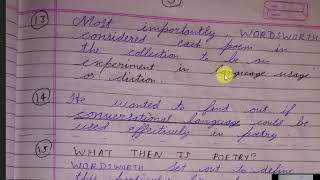 (13) Most importantly WORDSWORTH
considered each poem in
the collection to be an
experiment in language usage
or diction.
(14) He wanted to find out if
conversational language could be
used effectively in poetry
(15) WHAT THEN IS POETRY?
WORDSWORTH set out to define
this